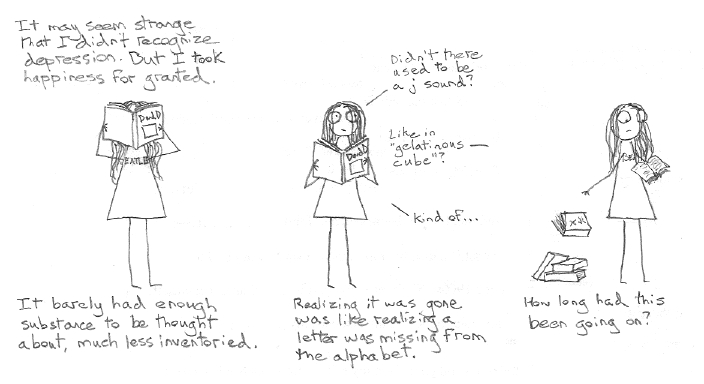 It may seem strange
that I didn't recognize
depression. But I took
happiness for granted.
DandD
BEATLE
It barely had enough
substance to be thought
about, much less inventoried.
Didn't there
used to be
a j sound?
Like in
"gelatinous
cube"?
kind of...
DandD
Realizing it was gone
was like realizing a
letter was missing from
the alphabet.
How long had this
been going on?